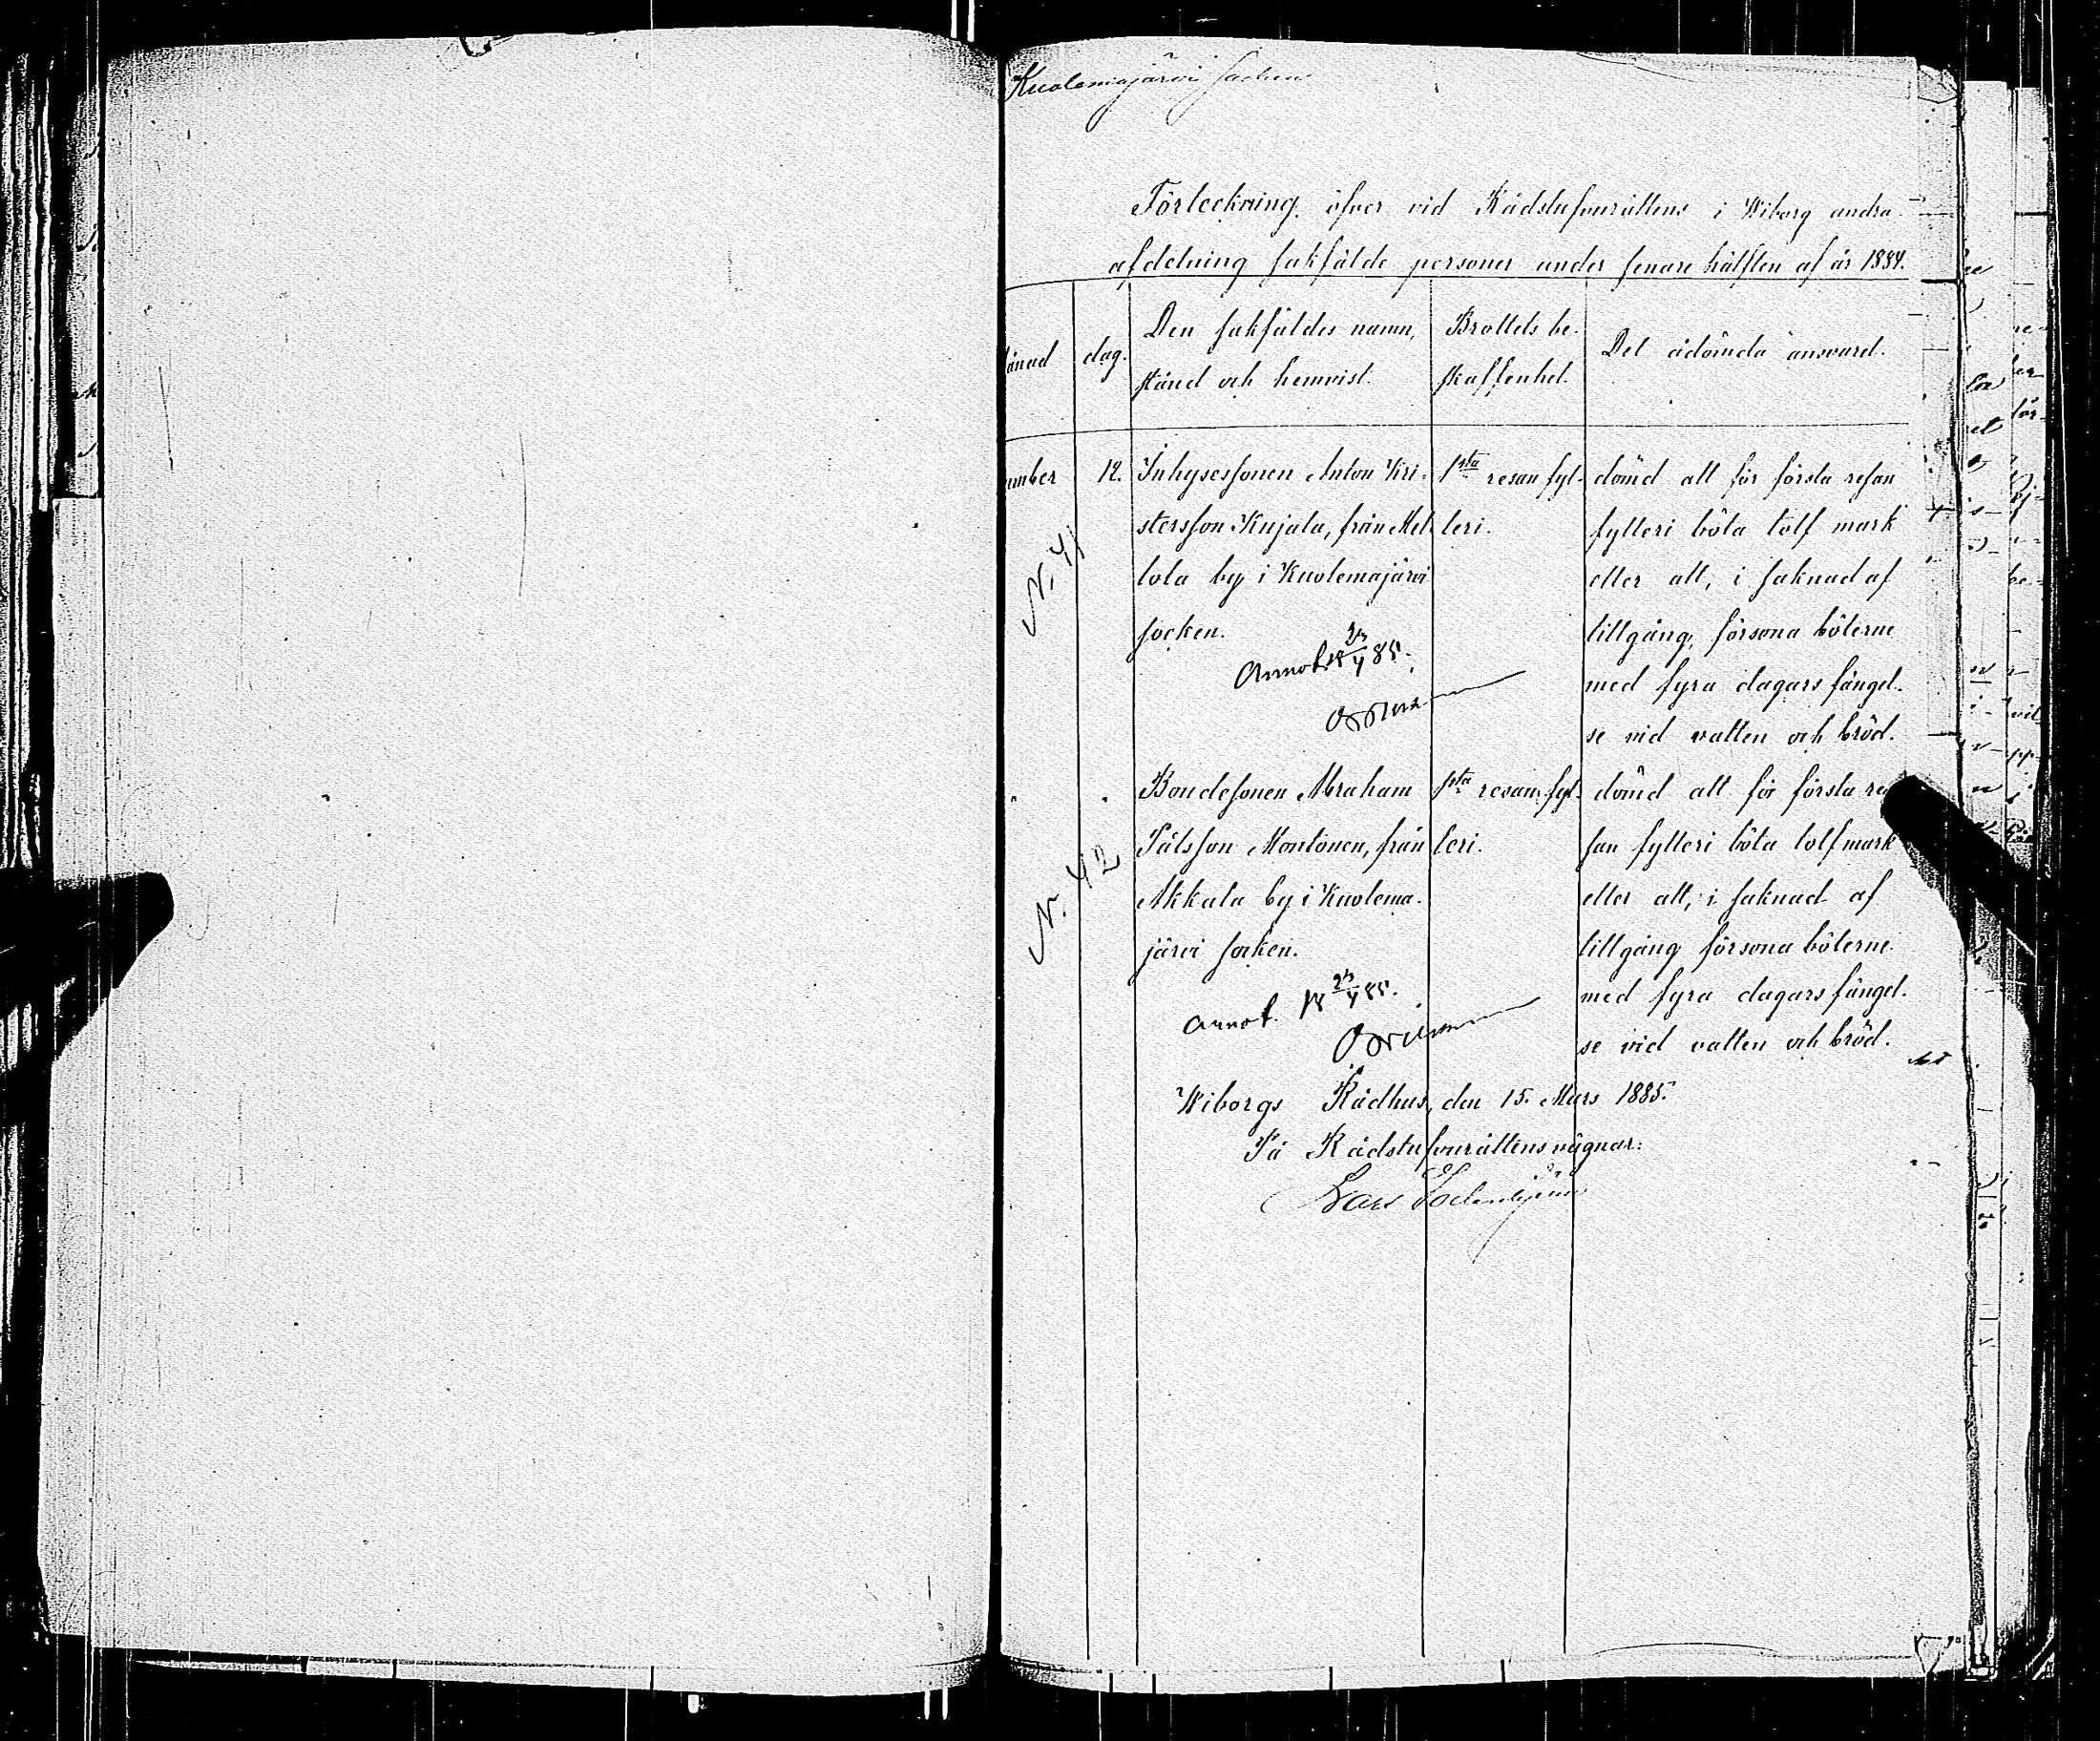 Kuolemajärvi socken
Förteckning öfver vid Rådstufvurättens i Wiborg andra
afdelning sakfälde personer under senare hälften af år 1884.
ånad
dag.
Den sakfäldes namn,
stånd och hemvist.
Brottets be-
skaffenhet.
Det ådömda ansvaret.
ember
12.
Inhysessonen Anton Kri-
stersson Kujala, från Mel-
lola by i Kuolemajärvi
socken.
1sta resan fyl-
leri.
dömd att för första resan
fylleri böta tolf mark
eller att, i saknad af
tillgång, försona böterne
med fyra dagars fängel-
se vid vatten och bröd.
N. 41
Annot. 18 23/4 85.
Bondesonen Abraham
Pålsson Montonen, från
Akkala by i Kuolema-
järvi socken.
1sta resan fyl-
leri.
dömd att för första re-
san fylleri böta tolf mark
eller att, i saknad af
tillgång försona böterne
med fyra dagars fängel-
se vid vatten och bröd.
N. 42
Annot. 18 23/4 85.
Wiborgs Rådhus, den 15. Mars 1885.
På Rådstufvurättens vägnar: